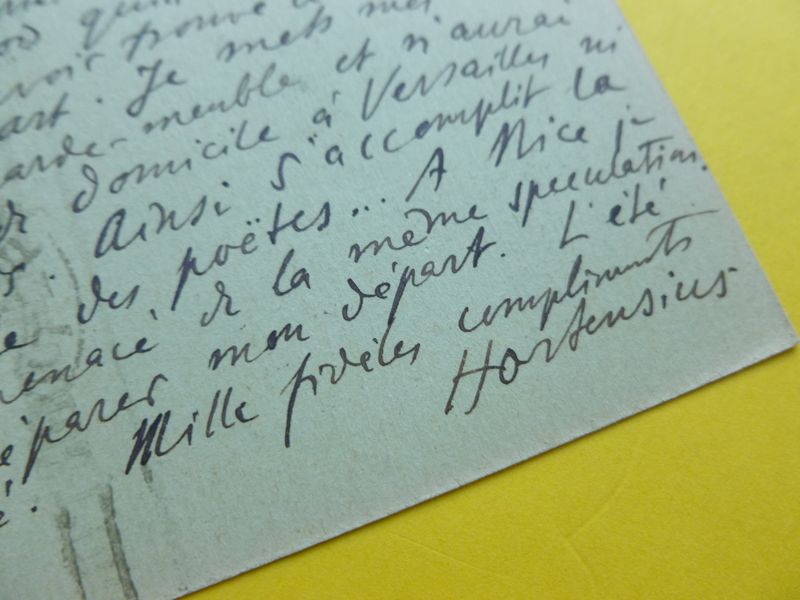 voir trouvé
art. Je mets mes
garde-meuble et n'aurai
domicile à Versailles ni
. Ainsi s'accomplit la
des poëtes... A Nice je
menacé de la même spéculation.
éparer mon départ. L'été
é. Mille fidèles compliments
Hortensius